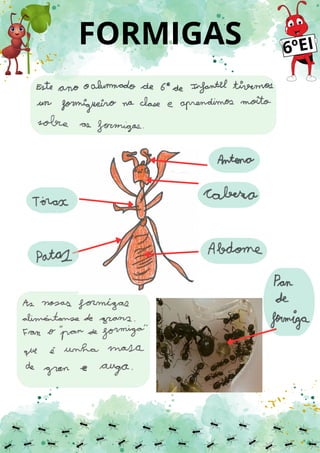 FORMIGAS
6ºEI
Este ano o alumnado de 6º de Infantil tivemos
un formigueiro na clase e aprendimos moito
sobre as formigas.
Antena
Cabeza
Tórax
Patas
Abdome
As nosas formigas
aliméntanse de grans.
Fan o "pan de formiga"
que é unha masa
de gran e auga.
Pan
de
formiga